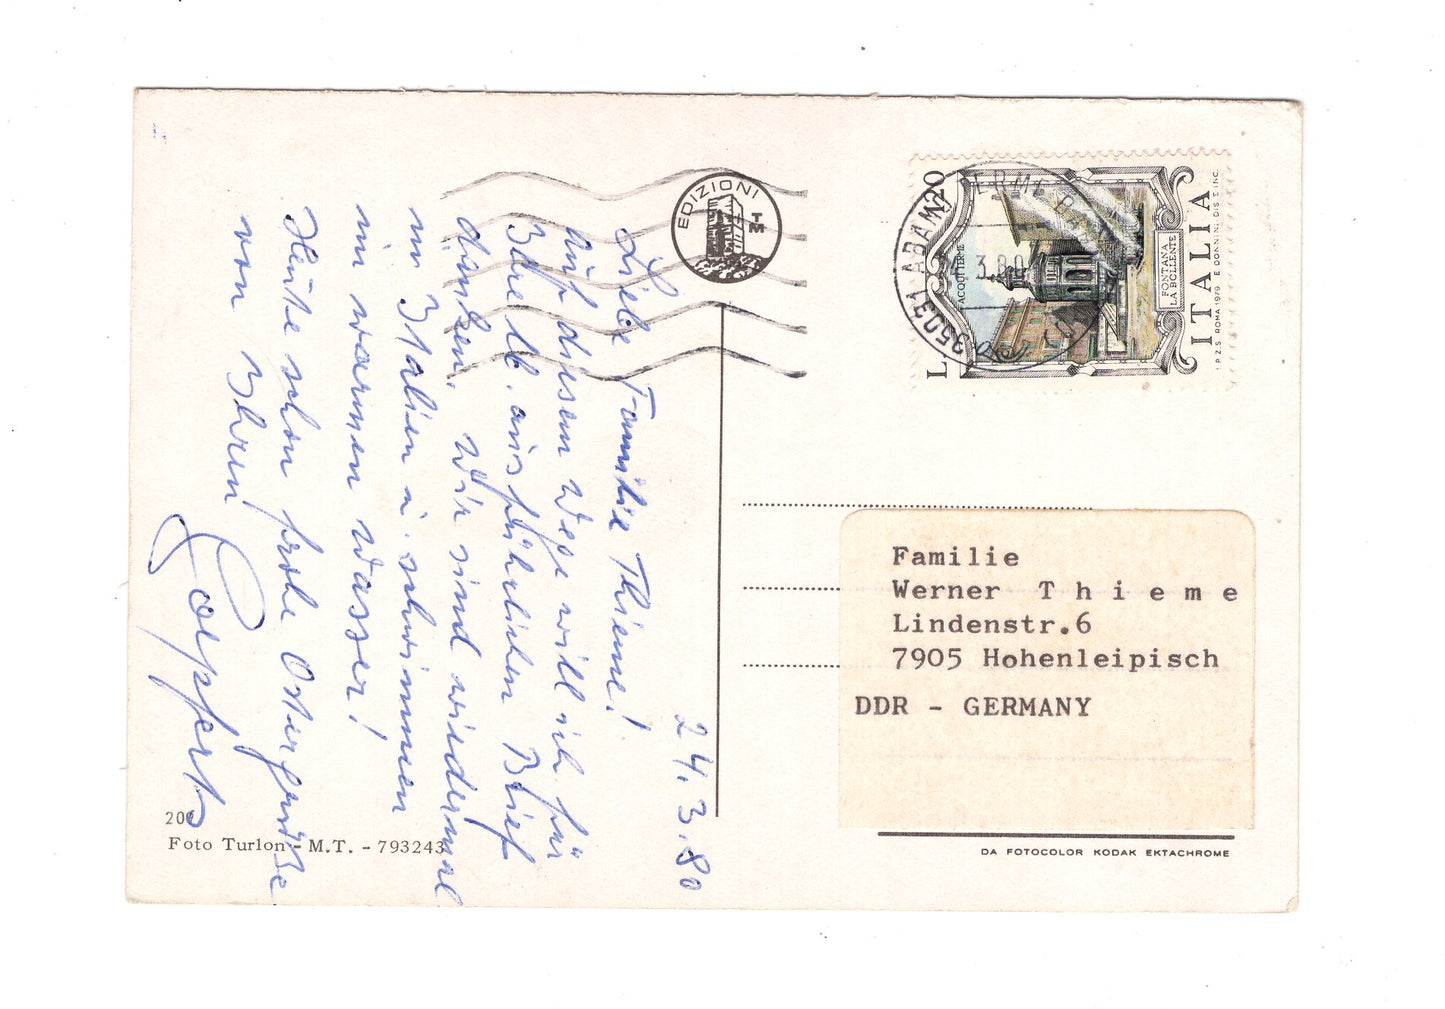 24.3.80
Liebe Familie Thieme!
Auf diesem Wege will ich für
Ihre lb. ausführlichen Brief
danken. Wir sind wiedermal
in Italien u. schwimmen
im warmen Wasser!
Heute schon frohe Ostergrüße
von Ihren
Goepferts
EDIZIONI
TM
L. 120
ITALIA
ACQUI TERME
FONTANA
LA BOLLENTE
I.P.Z.S. ROMA 1979 E. DONNINI DIS. E INC.
35031 ABANO TERME
3.80
Familie
Werner T h i e m e
Lindenstr.6
7905 Hohenleipisch
DDR - GERMANY
Foto Turlon - M.T. - 793243
DA FOTOCOLOR KODAK EKTACHROME